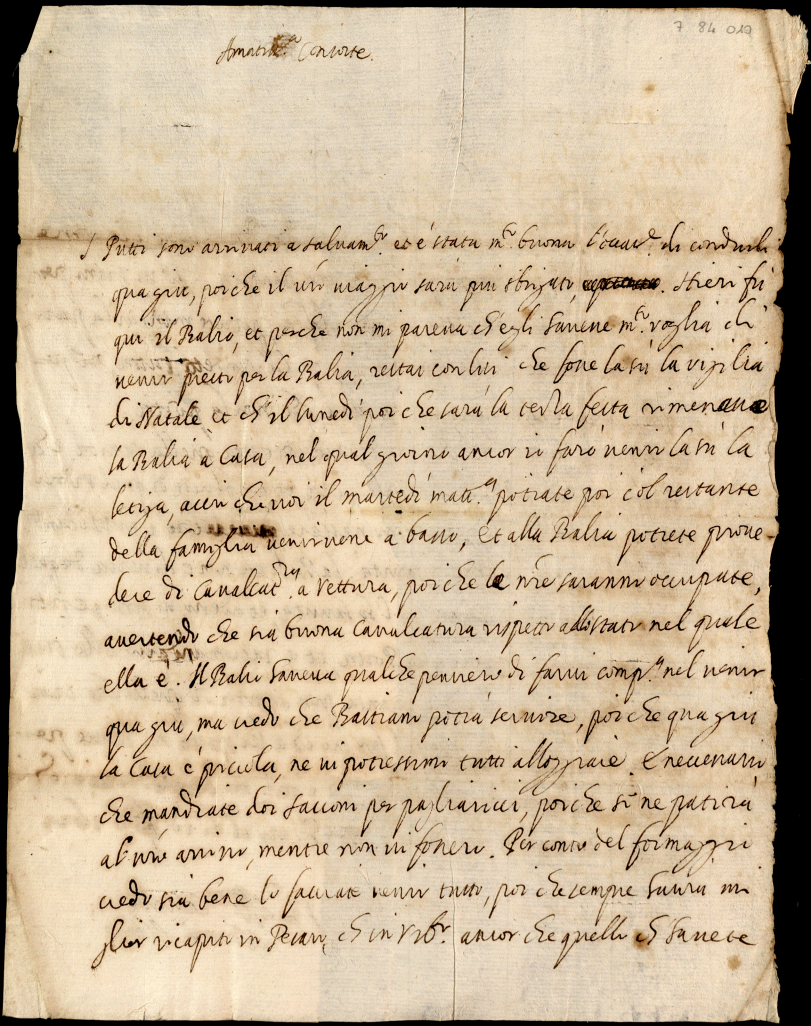 7 84 019
Amatiss.a Consorte.
I Putti sono arrivati a salvam.to et è stata m.to buona l'occas.e di condurli
qua giù, poiche il vro viaggio sarà più sbrigato, . Hieri fù
qui il Balio, et perche non mi pareva ch'egli havesse m.ta voglia di
venir presto per la Balia, restai con lui che fosse la sù la vigilia
di Natale et ch'il lunedì poi che sarà la terza festa rimenasse
la Balia à Casa, nel qual giorno ancor io farò venir la sù la
letiga, acciò che voi il martedì matt.a potiate poi col restante
della famiglia venirvene a basso, et alla Balia potrete prove
dere di Cavalcat.ra a vettura, poiche le nre saranno occupate,
avertendo che sia buona Cavalcatura rispetto allo stato nel quale
ella è. Il Balio haveva qualche pensiero di farvi comp.a nel venir
qua giù, ma credo che Bastiano potrà servire, poi che qua giù
la Casa è piciola, ne vi potressimo tutti alloggiare. È necessario
che mandiate doi sacconi per pagliaricci, poiche si ne patirà
al vro arrivo, mentre non vi fossero. Per conto del formaggio
credo sia bene lo facciate venir tutto, poi che sempre havrà mi
glior ricapito in Pesaro, ch'in Urb.o ancor che quello ch'havete